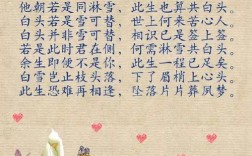 他朝若是同淋雪，此生也算共白头。
白头若是雪可替，世上何来苦心人。
白头并非雪可替，相识已是签上签。
若是此时君在侧，何需淋雪共白头。
余生即便不是你，此生一程已足矣。
白雪岂止枝头落，下了眉梢心上头。
此生恐难再相逢，坠落片片葬夙梦。